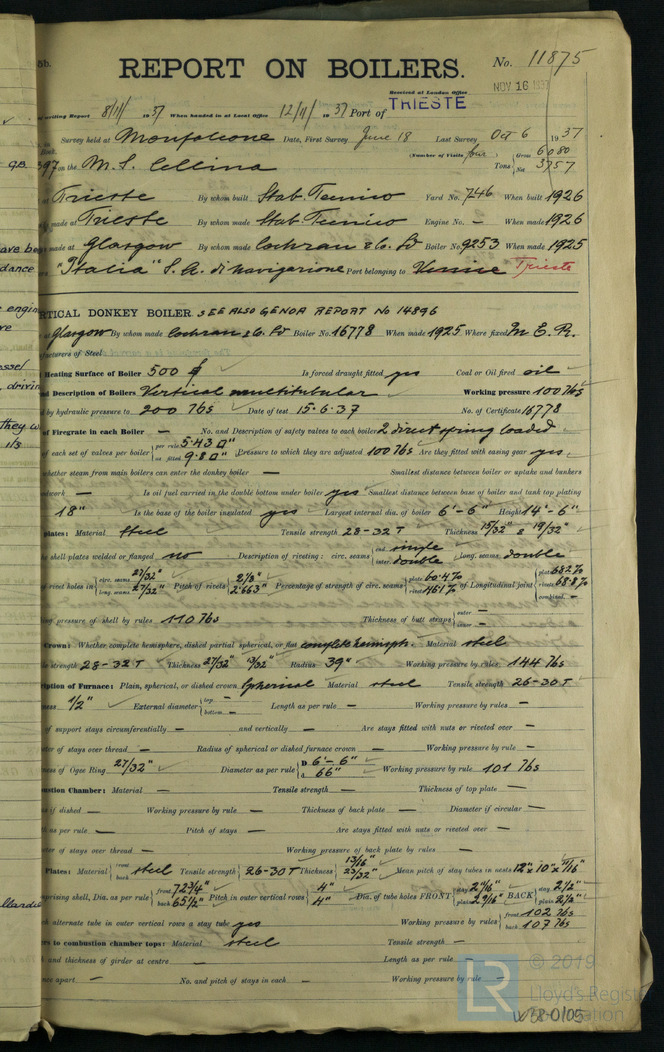 5b.
No. 11875
REPORT ON BOILERS.
Received at London Office
NOV 16 1937
writing Report 8/11/ 1937 When handed in at Local Office 12/11/ 1937 Port of TRIESTE
Survey held at Monfalcone Date, First Survey June 18 Last Survey Oct 6 1937
Book.
(Number of Visits four)
397 on the M.S. Cellina Tons { Gross 6080 Net 3757
at Trieste By whom built Stab. Tecnico Yard No. 746 When built 1926
made at Trieste By whom made Stab. Tecnico Engine No. — When made 1926
made at Glasgow By whom made Cochran & Co. Ld Boiler No. 9253 When made 1925
"Italia" S.A. di Navigazione Port belonging to Venice Trieste
RTICAL DONKEY BOILER. SEE ALSO GENOA REPORT No 14896
at Glasgow By whom made Cochran & Co. Ld Boiler No. 16778 When made 1925 Where fixed In E.R.
facturers of Steel
Heating Surface of Boiler 500 Is forced draught fitted yes Coal or Oil fired oil
nd Description of Boilers Vertical multitubular Working pressure 100 lbs
d by hydraulic pressure to 200 lbs Date of test 15.6.37 No. of Certificate 16778
of Firegrate in each Boiler — No. and Description of safety valves to each boiler 2 direct spring loaded
of each set of valves per boiler { per rule 5.43 □" as fitted 9.8 □" Pressure to which they are adjusted 100 lbs Are they fitted with easing gear yes
whether steam from main boilers can enter the donkey boiler — Smallest distance between boiler or uptake and bunkers
odwork — Is oil fuel carried in the double bottom under boiler yes Smallest distance between base of boiler and tank top plating
18" Is the base of the boiler insulated yes Largest internal dia. of boiler 6'-6" Height 14'-6"
plates: Material Steel Tensile strength 28-32 T Thickness 15/32" & 19/32"
he shell plates welded or flanged no Description of riveting: circ. seams { end single inter. double long. seams double
of rivet holes in { circ. seams 27/32" long. seams 27/32" Pitch of rivets { 2⅛" 2.663" Percentage of strength of circ. seams { plate 60.4% rivets 46.1% of Longitudinal joint { plate 68.2% rivets 68.8% combined —
ng pressure of shell by rules 110 lbs Thickness of butt straps { outer — inner —
Crown: Whether complete hemisphere, dished partial spherical, or flat complete hemisph. Material steel
le strength 28-32 T Thickness 27/32" Radius 39" Working pressure by rules 144 lbs
iption of Furnace: Plain, spherical, or dished crown Spherical Material steel Tensile strength 26-30 T
ness ½" External diameter { top — bottom — Length as per rule — Working pressure by rules —
of support stays circumferentially — and vertically — Are stays fitted with nuts or riveted over —
ter of stays over thread — Radius of spherical or dished furnace crown — Working pressure by rule —
ness of Ogee Ring 27/32" Diameter as per rule { D 6'-6" d 66" Working pressure by rule 101 lbs
bustion Chamber: Material — Tensile strength — Thickness of top plate —
s if dished — Working pressure by rule — Thickness of back plate — Diameter if circular —
h as per rule — Pitch of stays — Are stays fitted with nuts or riveted over —
ter of stays over thread — Working pressure of back plate by rules —
Plates: Material { front back steel Tensile strength { 26-30 T Thickness { 13/16" 23/32" Mean pitch of stay tubes in nests 12" x 10" x
prising shell, Dia. as per rule { front 72¾" back 65½" Pitch in outer vertical rows { 4" 4" Dia. of tube holes FRONT { stay 2 9/16" plain 2 9/16" BACK { stay 2½" plain 2½"
h alternate tube in outer vertical rows a stay tube yes Working pressure by rules { front 102 lbs back 107 lbs
rs to combustion chamber tops: Material steel Tensile strength —
and thickness of girder at centre — Length as per rule —
nce apart — No. and pitch of stays in each — Working pressure by rule —
© 2019
LR
Lloyd's Register
Foundation
W58-0105